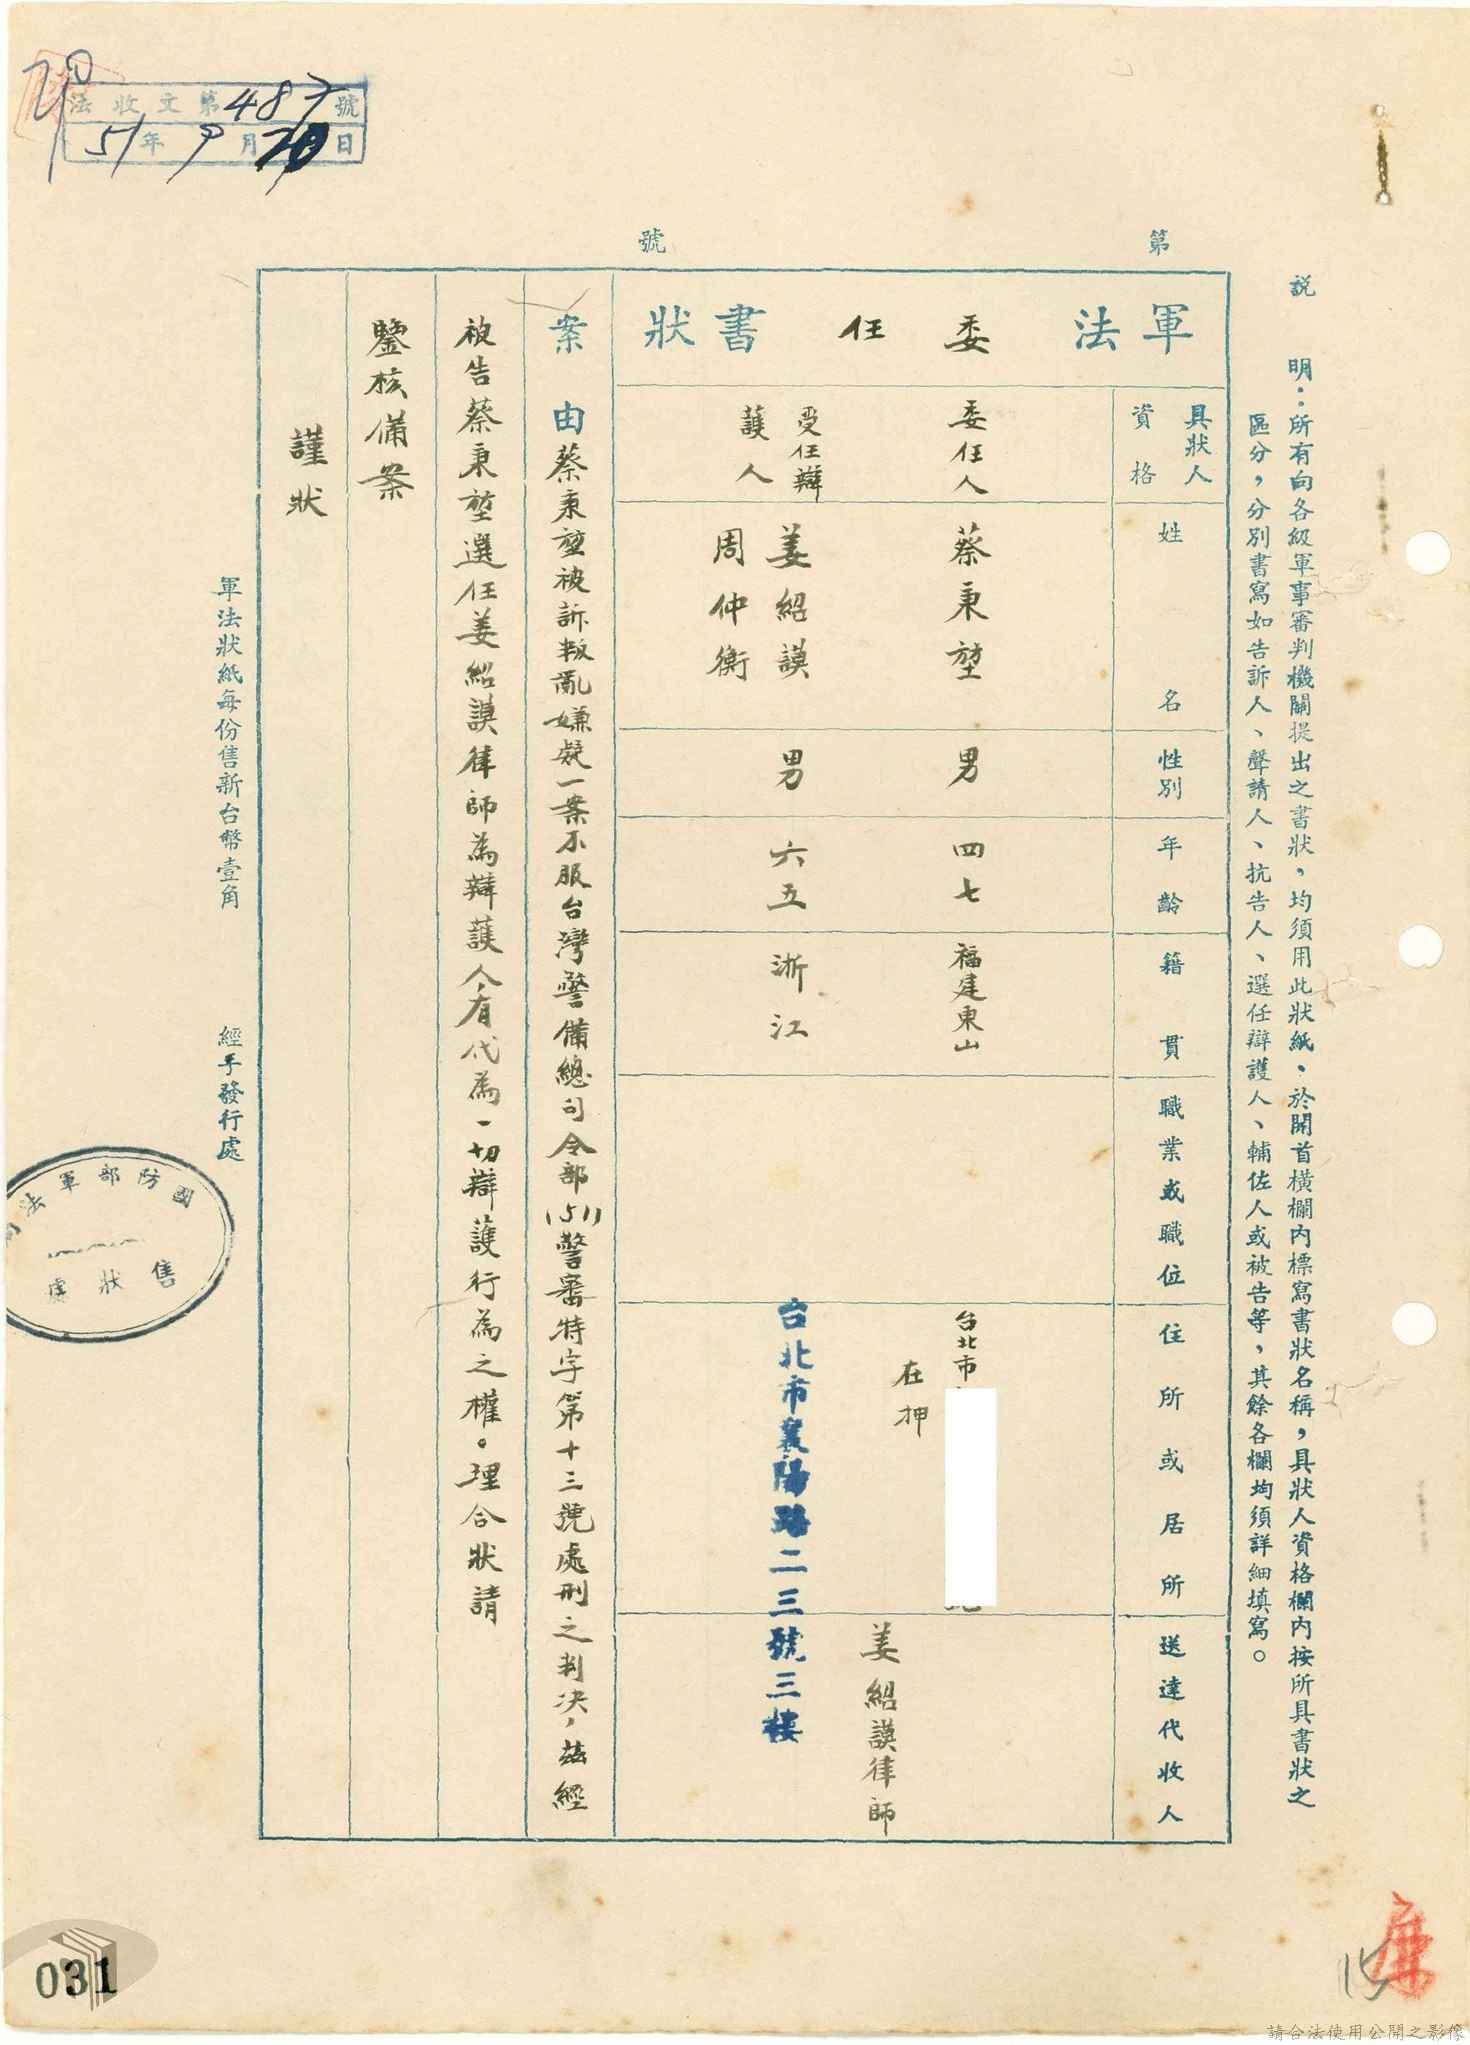 法收文第487號
51年9月20日
第 號
說明：所有向各級軍事審判機關提出之書狀，均須用此狀紙．於開首橫欄內標寫書狀名稱，具狀人資格欄內按所具書狀之
區分，分別書寫如告訴人、聲請人、抗告人、選任辯護人、輔佐人或被告等，其餘各欄均須詳細填寫。
軍法委任書狀
具狀人
資格
姓名
性別
年齡
籍貫
職業或職位
住所或居所
送達代收人
委任人
蔡秉堃
男
四七
福建東山
台北市
在押
姜紹謨律師
受任辯
護人
姜紹謨
周仲衡
男
六五
浙江
台北市襄陽路二三號三樓
案由
蔡秉堃被訴叛亂嫌疑一案不服台灣警備總司令部(51)警審特字第十三號處刑之判決，茲經
被告蔡秉堃選任姜紹謨律師為辯護人，有代為一切辯護行為之權。理合狀請
鑒核備案
謹狀
軍法狀紙每份售新台幣壹角
經手發行處
國防部軍法局
售狀處
031
15
請合法使用公開之影像